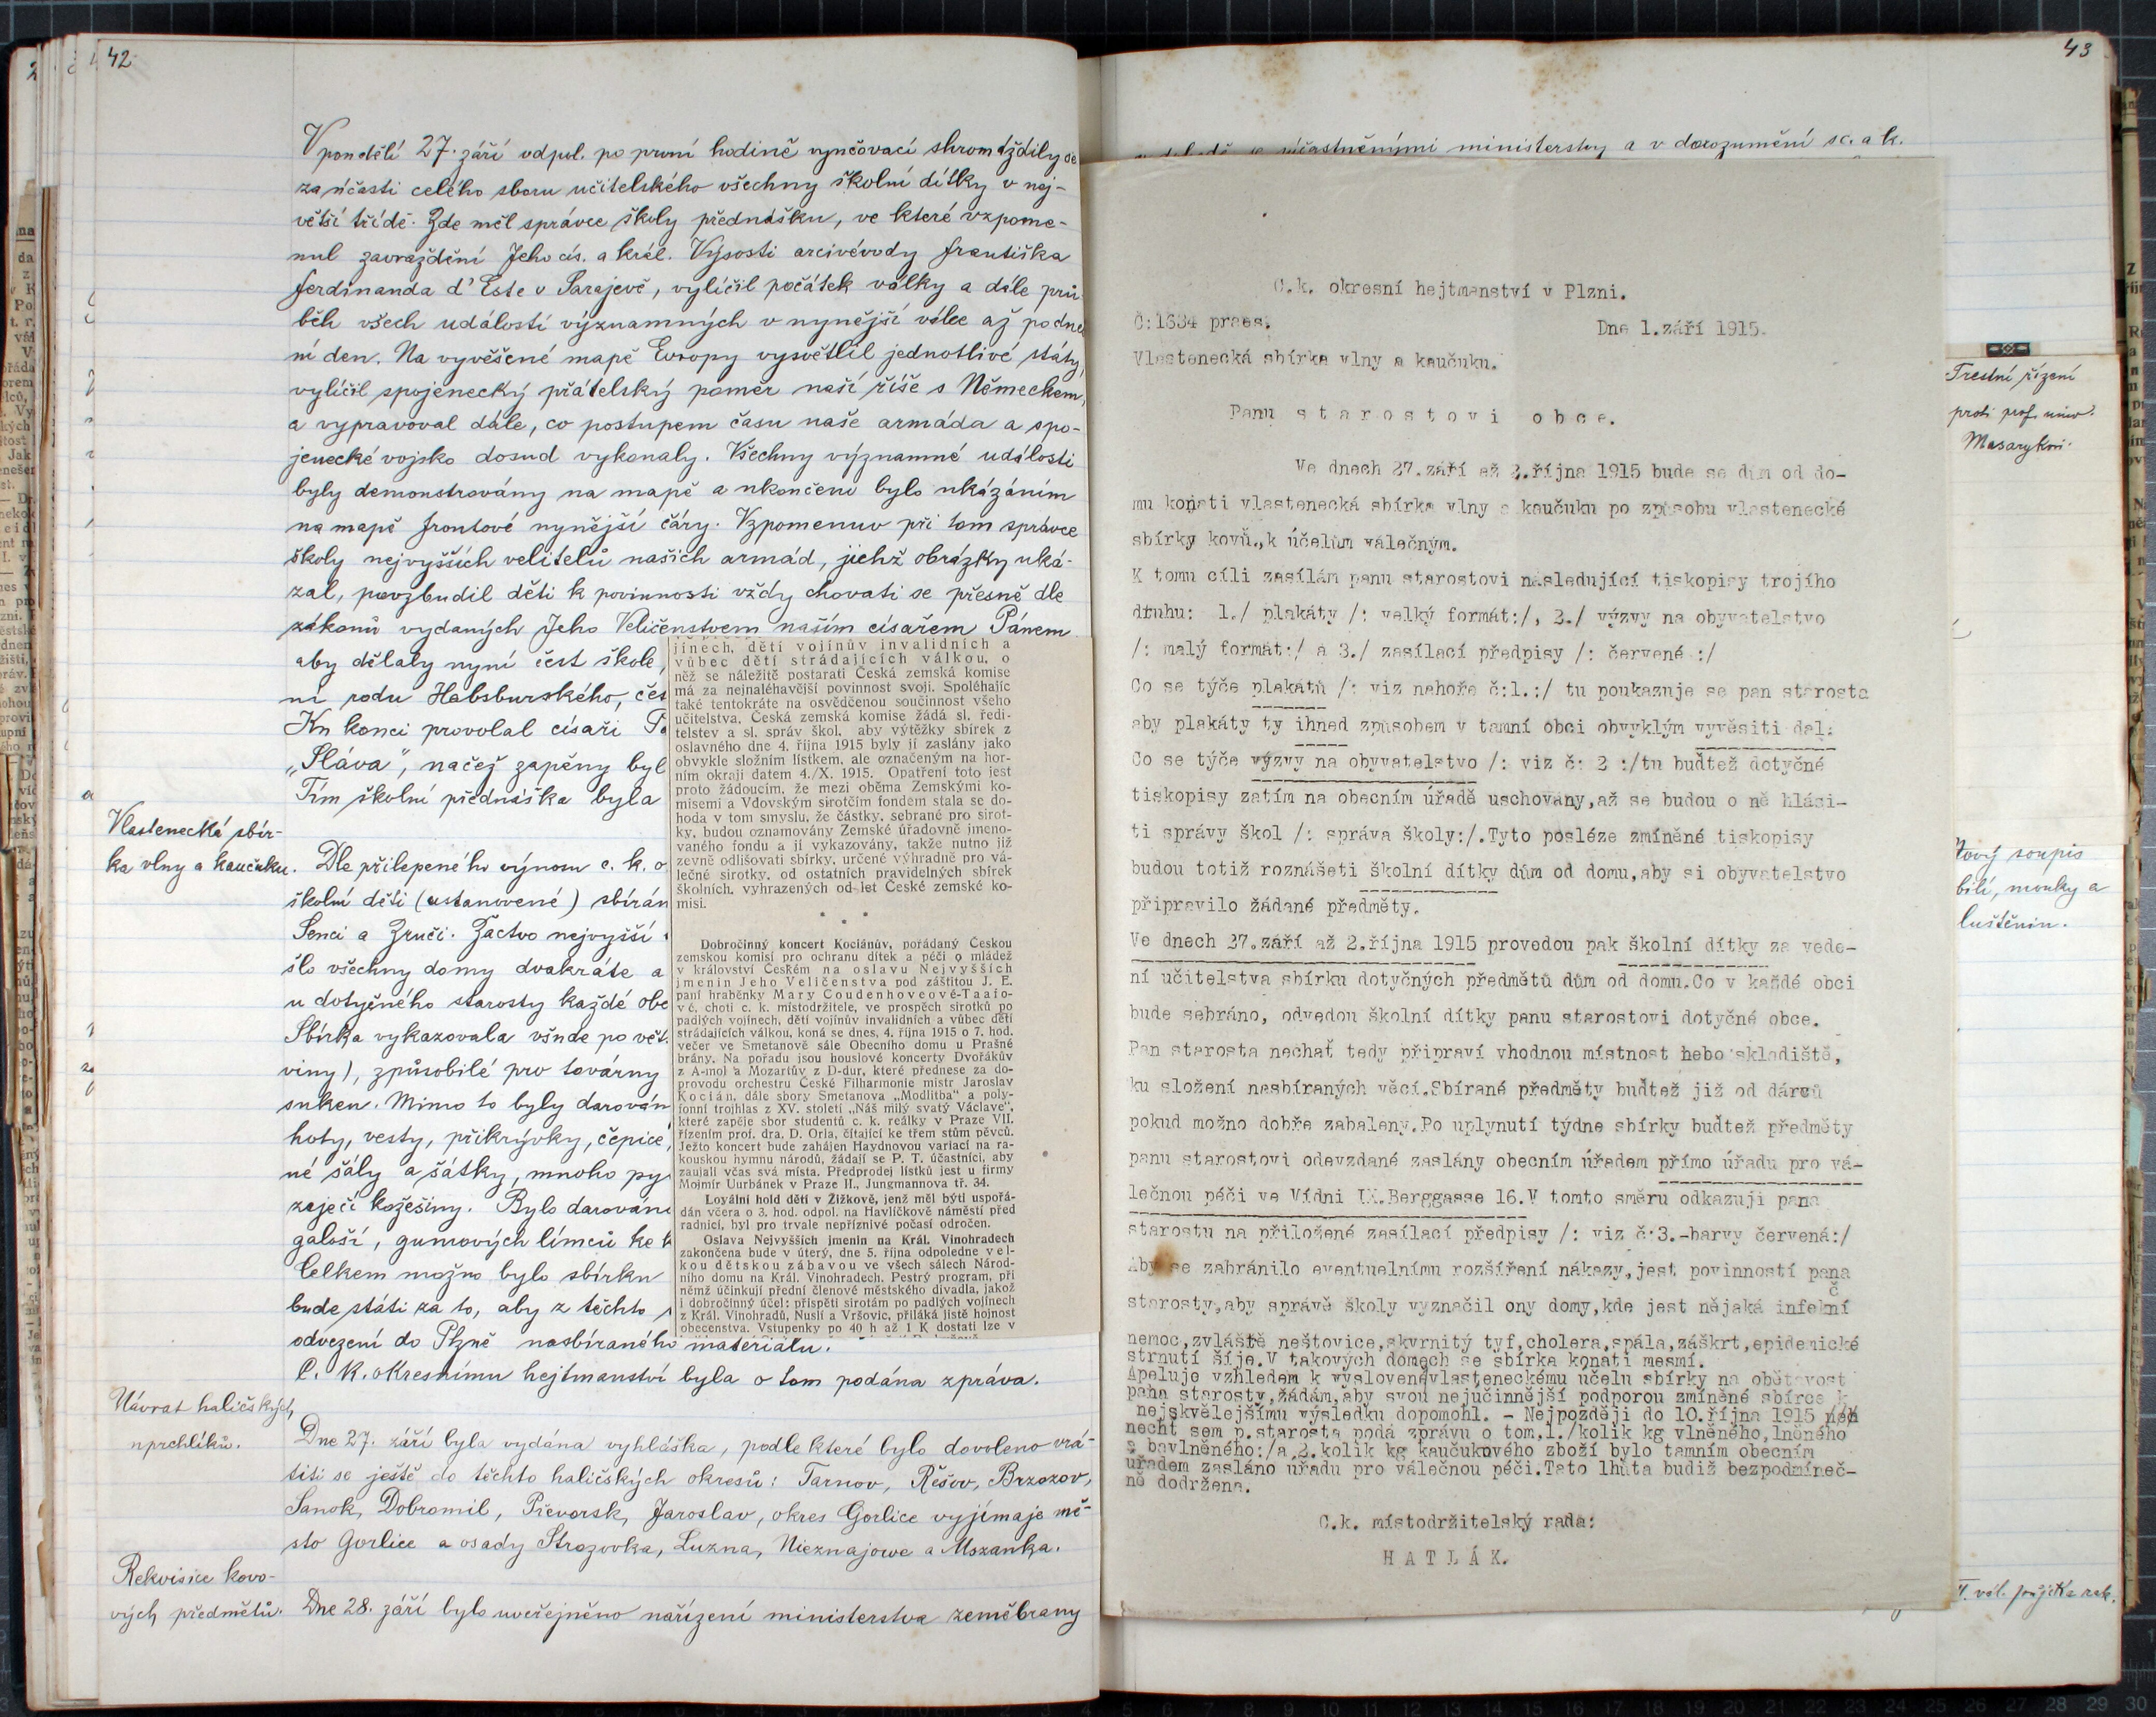 42
V pondělí 27. září odpol. po první hodině vyučovací shromáždily se
za účasti celého sboru učitelského všechny školní dítky v nej-
větší třídě. Zde měl správce školy přednášku, ve které vzpome-
nul zavraždění Jeho cís. a král. Výsosti arcivévody Františka
Ferdinanda d'Este v Sarajevě, vylíčil počátek války a dále prů-
běh všech událostí významných v nynější válce až po dne
ní den. Na vyvěšené mapě Evropy vysvětlil jednotlivé státy,
vylíčil spojenecký přátelský poměr naší říše s Německem,
a vypravoval dále, co postupem času naše armáda a spo-
jenecké vojsko dosud vykonaly. Všechny významné události
byly demonstrovány na mapě a ukončeno bylo ukázáním
na mapě frontové nynější čáry. Vzpomenuv při tom správce
školy nejvyšších velitelů našich armád, jichž obrázky uká-
zal, povzbudil děti k povinnosti vždy chovati se přesně dle
zákonů vydaných Jeho Veličenstvem naším císařem Pánem
aby dělaly nyní čest škole,
ní rodu Habsburského, čes
Ku konci provolal císaři
„Sláva", načež zapěny byl
Tím školní přednáška byla
Vlastenecká sbír-
ka vlny a kaučuku.
Dle přilepeného výnosu c. k. o
školní děti (ustanovené) sbírán
Senci a Zruči. Žactvo nejvyšší
šlo všechny domy dvakráte a
u dotyčného starosty každé obc
Sbírka vykazovala všude po vět.
viny), způsobilé pro továrny
suken. Mimo to byly darován
hoty, vesty, přikrývky, čepice,
né šály a šátky, mnoho py
zaječí kožešiny. Bylo darován
galoší, gumových límců ke k
Celkem možno bylo sbírku
bude státi za to, aby z těchto
odvezení do Plzně nasbíraného materiálu.
C. k. okresnímu hejtmanství byla o tom podána zpráva.
Návrat haličských
uprchlíků.
Dne 27. září byla vydána vyhláška, podle které bylo dovoleno vrá-
titi se ještě do těchto haličských okresů: Tarnov, Řešov, Brzozov,
Sanok, Dobromil, Převorsk, Jaroslav, okres Gorlice vyjímaje mě-
sto Gorlice a osady Strozovka, Luzna, Nieznajowe a Mszanka.
Rekvisice kovo-
vých předmětů.
Dne 28. září bylo uveřejněno nařízení ministerstva zeměbrany
jinech, dětí vojínův invalidních a
vůbec dětí strádajících válkou, o
něž se náležitě postarati Česká zemská komise
má za nejnaléhavější povinnost svoji. Spoléhajíc
také tentokráte na osvědčenou součinnost všeho
učitelstva, Česká zemská komise žádá sl. ředi-
telstev a sl. správ škol, aby výtěžky sbírek z
oslavného dne 4. října 1915 byly jí zaslány jako
obvykle složním lístkem, ale označeným na hor-
ním okraji datem 4./X. 1915. Opatření toto jest
proto žádoucím, že mezi oběma Zemskými ko-
misemi a Vdovským sirotčím fondem stala se do-
hoda v tom smyslu, že částky, sebrané pro sirot-
ky, budou oznamovány Zemské úřadovně jmeno-
vaného fondu a jí vykazovány, takže nutno již
zevně odlišovati sbírky, určené výhradně pro vá-
lečné sirotky, od ostatních pravidelných sbírek
školních, vyhrazených od let České zemské ko-
misi.
* * *
Dobročinný koncert Kociánův, pořádaný Českou
zemskou komisí pro ochranu dítek a péči o mládež
v království Českém na oslavu Nejvyšších
jmenin Jeho Veličenstva pod záštitou J. E.
paní hraběnky Mary Coudenhoveové-Taafo-
vé, choti c. k. místodržitele, ve prospěch sirotků po
padlých vojínech, dětí vojínův invalidních a vůbec dětí
strádajících válkou, koná se dnes, 4. října 1915 o 7. hod.
večer ve Smetanově sále Obecního domu u Prašné
brány. Na pořadu jsou houslové koncerty Dvořákův
z A-mol a Mozartův z D-dur, které přednese za do-
provodu orchestru České Filharmonie mistr Jaroslav
Kocián, dále sbory Smetanova „Modlitba" a poly-
fonní trojhlas z XV. století „Náš milý svatý Václave",
které zapěje sbor studentů c. k. reálky v Praze VII.
řízením prof. dra. D. Orla, čítající ke třem stům pěvců.
Ježto koncert bude zahájen Haydnovou variací na ra-
kouskou hymnu národů, žádají se P. T. účastníci, aby
zaujali včas svá místa. Předprodej lístků jest u firmy
Mojmír Uurbánek v Praze II., Jungmannova tř. 34.
Loyální hold dětí v Žižkově, jenž měl býti uspořá-
dán včera o 3. hod. odpol. na Havlíčkově náměstí před
radnicí, byl pro trvale nepříznivé počasí odročen.
Oslava Nejvyšších jmenin na Král. Vinohradech
zakončena bude v úterý, dne 5. října odpoledne vel-
kou dětskou zábavou ve všech sálech Národ-
ního domu na Král. Vinohradech. Pestrý program, při
němž účinkují přední členové městského divadla, jakož
i dobročinný účel: přispěti sirotám po padlých vojínech
z Král. Vinohradů, Nuslí a Vršovic, přiláká jistě hojnost
obecenstva. Vstupenky po 40 h až 1 K dostati lze v
43
účastněnými ministerstvy a v dorozumění s c. a k.
C.k. okresní hejtmanství v Plzni.
Č:1634 praes.
Dne 1.září 1915.
Vlastenecká sbírka vlny a kaučuku.
Panu starostovi obce.
Ve dnech 27.září až 2.října 1915 bude se dům od do-
mu konati vlastenecká sbírka vlny a kaučuku po způsobu vlastenecké
sbírky kovů.,k účelům válečným.
K tomu cíli zasílám panu starostovi následující tiskopisy trojího
druhu: 1./ plakáty /: velký formát:/, 2./ výzvy na obyvatelstvo
/: malý formát:/ a 3./ zasílací předpisy /: červené :/
Co se týče plakátů /: viz nahoře č:1.:/ tu poukazuje se pan starosta
aby plakáty ty ihned způsobem v tamní obci obvyklým vyvěsiti dal:
Co se týče výzvy na obyvatelstvo /: viz č: 2 :/tu buďtež dotyčné
tiskopisy zatím na obecním úřadě uschovány,až se budou o ně hlási-
ti správy škol /: správa školy:/.Tyto posléze zmíněné tiskopisy
budou totiž roznášeti školní dítky dům od domu,aby si obyvatelstvo
připravilo žádané předměty.
Ve dnech 27.září až 2.října 1915 provedou pak školní dítky za vede-
ní učitelstva sbírku dotyčných předmětů dům od domu.Co v každé obci
bude sebráno, odvedou školní dítky panu starostovi dotyčné obce.
Pan starosta nechať tedy připraví vhodnou místnost nebo skladiště,
ku složení nasbíraných věcí.Sbírané předměty buďtež již od dárců
pokud možno dobře zabaleny.Po uplynutí týdne sbírky buďtež předměty
panu starostovi odevzdané zaslány obecním úřadem přímo úřadu pro vá-
lečnou péči ve Vídni IX.Berggasse 16.V tomto směru odkazuji pana
starostu na přiložené zasílací předpisy /: viz č:3.-barvy červená:/
Aby se zabránilo eventuelnímu rozšíření nákazy,jest povinností pana
starosty,aby správě školy vyznačil ony domy,kde jest nějaká infekční
nemoc,zvláště neštovice,skvrnitý tyf,cholera,spála,záškrt,epidemické
strnutí šíje.V takových domech se sbírka konati nesmí.
Apeluje vzhledem k vyslovenévlasteneckému účelu sbírky na obětavost
pana starosty,žádám,aby svou nejúčinnější podporou zmíněné sbírce k
nejskvělejšímu výsledku dopomohl. - Nejpozději do 10.října 1915
nechť sem p.starosta podá zprávu o tom,1./kolik kg vlněného,lněného
a bavlněného:/a 2.kolik kg kaučukového zboží bylo tamním obecním
úřadem zasláno úřadu pro válečnou péči.Tato lhůta budiž bezpodmíneč-
ně dodržena.
C.k. místodržitelský rada:
HATLÁK.
Trestní řízení
proti prof. univ.
Masarykovi.
Nový soupis
bilí, mouky a
luštěnin.
vál. půjčka rak.